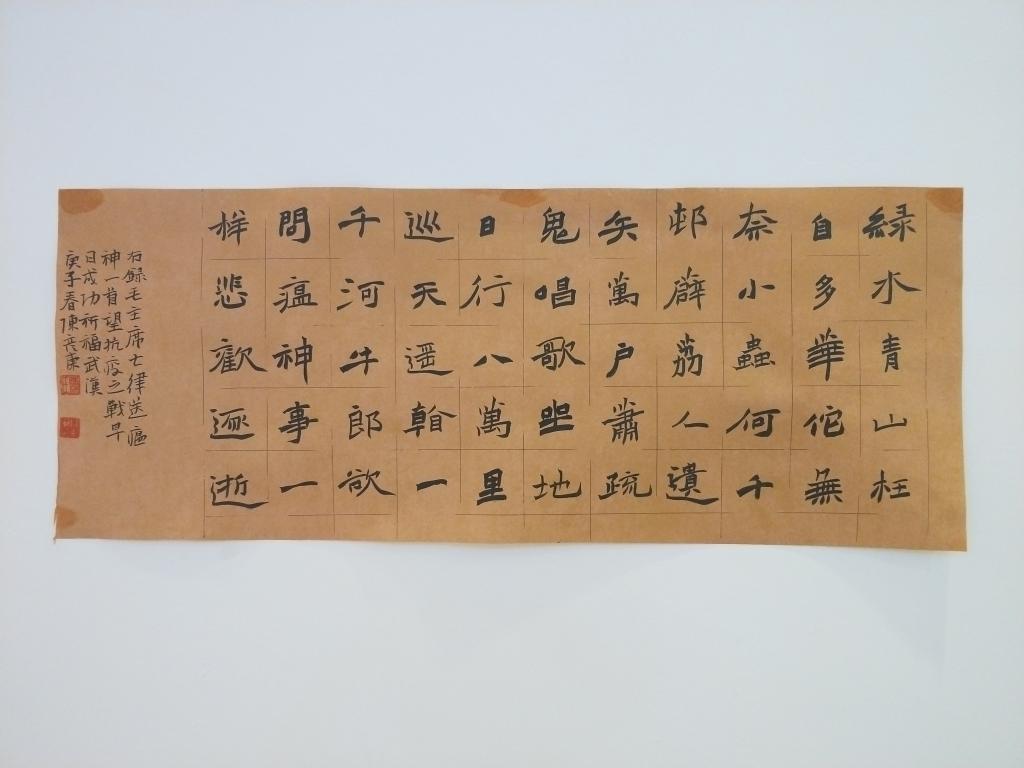 緑水青山枉
自多華佗無
奈小蟲何千
邨薜荔人遺
矢萬戶蕭疏
鬼唱歌坐地
日行八萬里
巡天遥看一
千河牛郎欲
問瘟神事一
样悲歡逐逝
右録毛主席七律送瘟
神一首望抗疫之戰早
日成功祈福武漢
庚子春陳彦康